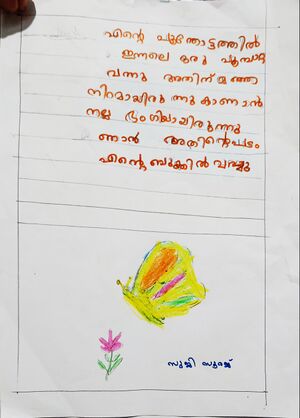 എന്റെ പൂന്തോട്ടത്തിൽ
ഇന്നലെ ഒരു പൂമ്പാറ്റ
വന്നു അതിന് മഞ്ഞ
നിറമായിരുന്നു കാണാൻ
നല്ല ഭംഗിയായിരുന്നു
ഞാൻ അതിന്റെപടം
എന്റെ ബുക്കിൽ വരച്ചു
സുജി സുരജ്